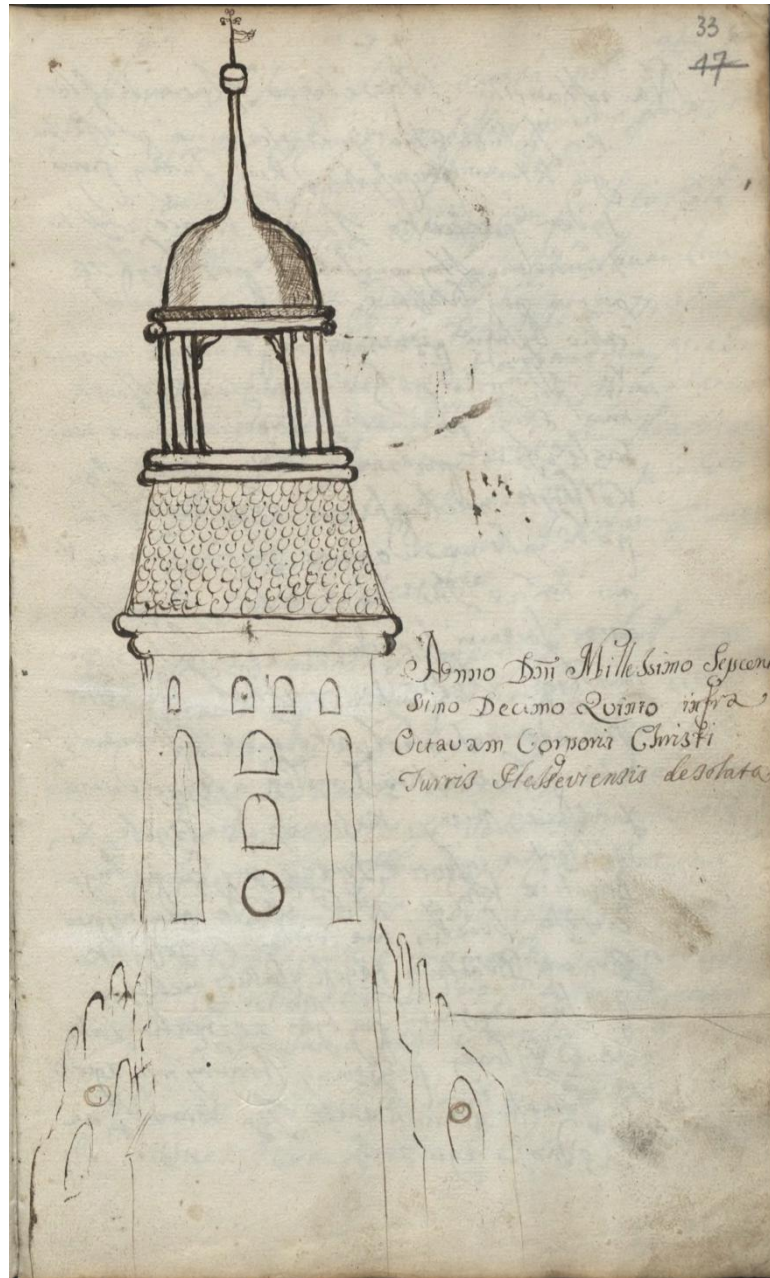 33
47
Anno Dm̄ Millessimo Sepcen
simo Decimo Quinto infra
Octavam Corporis Christi
Turris desolata